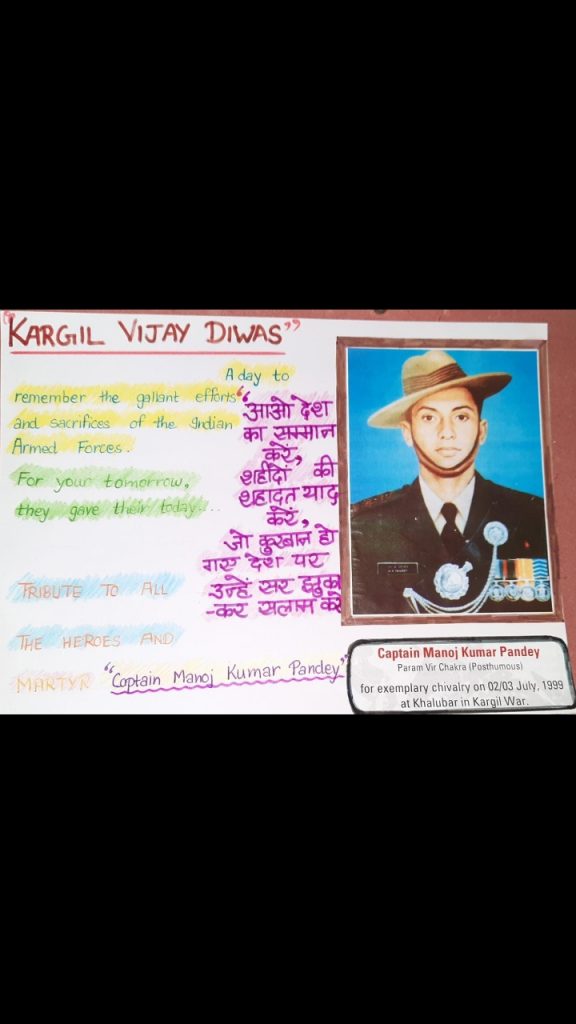 "KARGIL VIJAY DIWAS"
A day to
remember the gallant efforts
and sacrifices of the Indian
Armed Forces.
For your tomorrow,
they gave their today....
"आओ देश
का सम्मान
करें,
शहीदों की
शहादत याद
करें,
जो कुरबान हो
गए देश पर
उन्हें सर झुका
-कर सलाम करें
TRIBUTE TO ALL
THE HEROES AND
MARTYR "Captain Manoj Kumar Pandey"
Captain Manoj Kumar Pandey
Param Vir Chakra (Posthumous)
for exemplary chivalry on 02/03 July, 1999
at Khalubar in Kargil War.